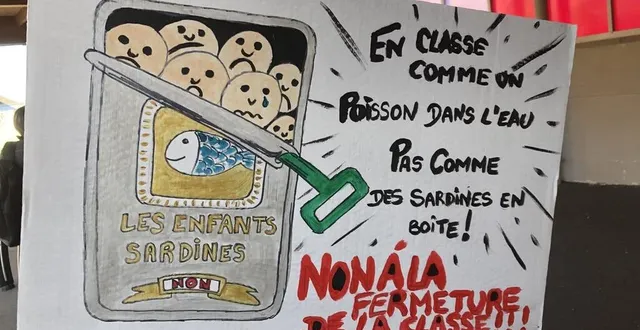 EN CLASSE
COMME UN
POISSON DANS L'EAU
PAS COMME
DES SARDINES EN
BOÎTE!
LES ENFANTS
SARDINES
NON
NON À LA
FERMETURE
DE LA CLASSE!!!